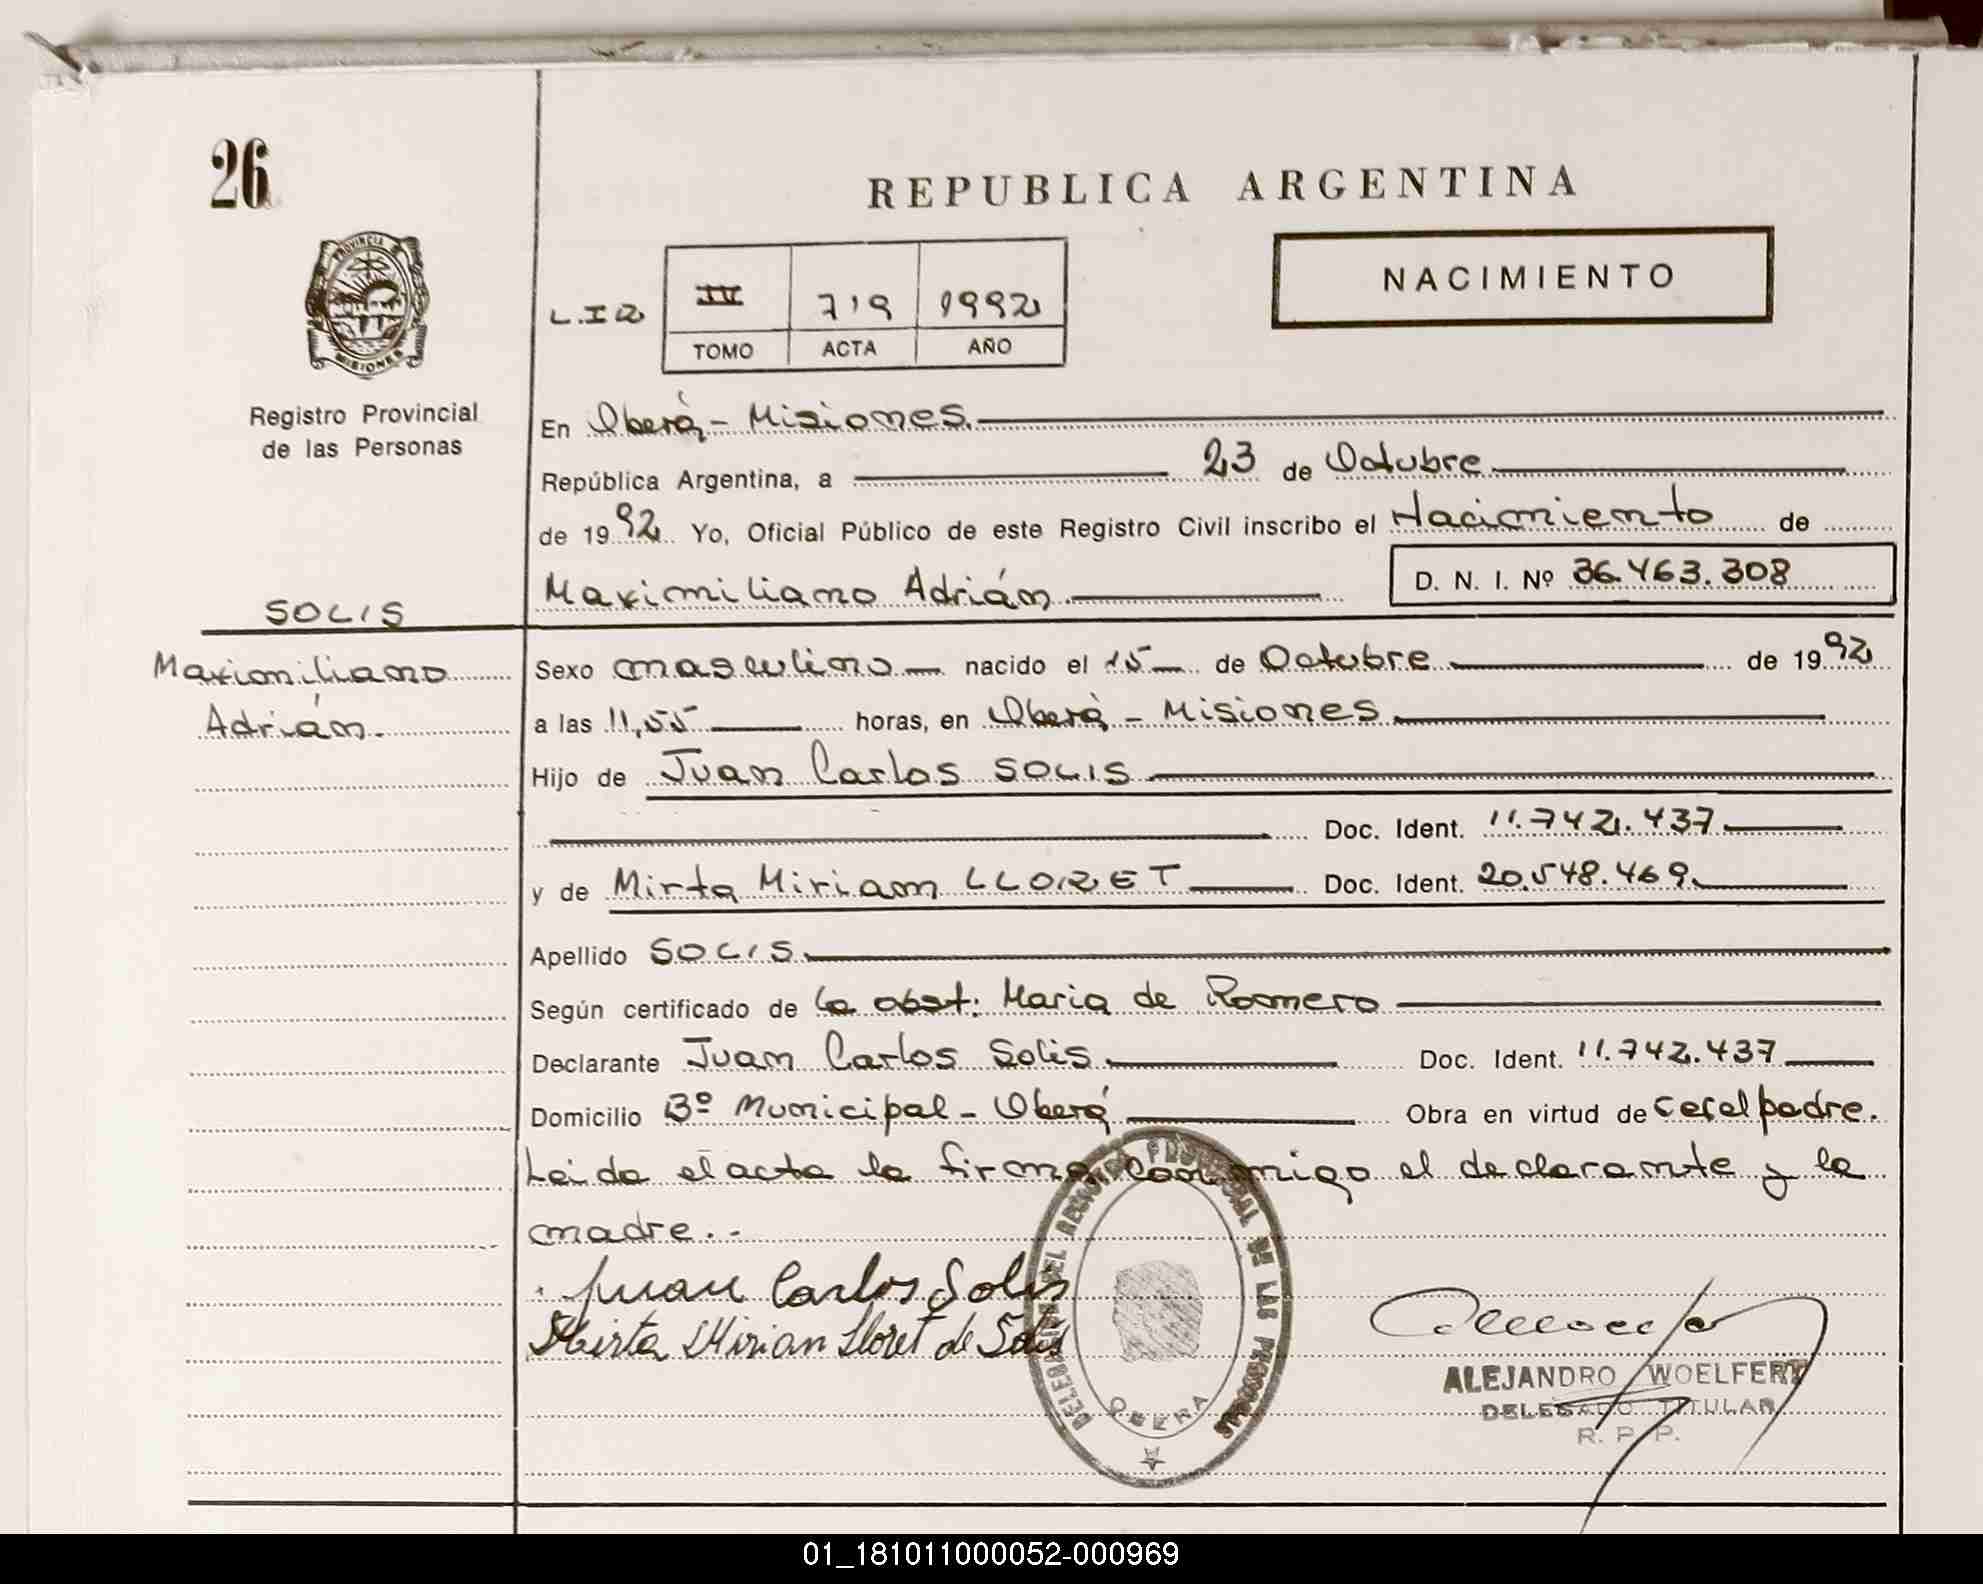 26
REPUBLICA ARGENTINA
PROVINCIA DE
MISIONES
NACIMIENTO
IV 719 1992
TOMO ACTA AÑO
Registro Provincial
de las Personas
En Oberá - Misiones.
República Argentina, a 23 de Octubre
de 1992 Yo, Oficial Público de este Registro Civil inscribo el Nacimiento de
Maximiliano Adrián. D. N. I. Nº 36.463.308
SOLIS
Maximiliano
Adrián.
Sexo masculino nacido el 15 de Octubre de 1992
a las 11,55 horas, en Oberá - Misiones
Hijo de Juan Carlos SOLIS
Doc. Ident. 11.742.437
y de Mirta Miriam LLORET Doc. Ident. 20.548.469.
Apellido SOLIS.
Según certificado de la obst: Maria de Romero
Declarante Juan Carlos Solis. Doc. Ident. 11.742.437
Domicilio Bº Municipal - Oberá Obra en virtud de ser el padre.
Leida el acta la firma conmigo el declarante y la
madre.-
Juan Carlos Solis
Mirta Mirian Lloret de Solis
DELEGACION DEL REGISTRO PROVINCIAL DE LAS PERSONAS
OBERA
ALEJANDRO WOELFERT
DELEGADO TITULAR
R. P. P.
01_181011000052-000969